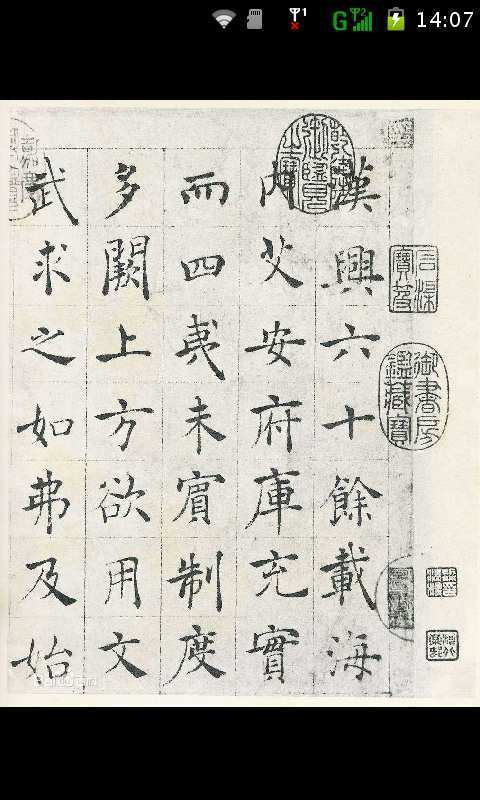 14:07
漢興六十餘載海
內艾安府庫充實
而四夷未賓制度
多闕上方欲用文
武求之如弗及始
乾隆御覽之寶
石渠寶笈
御書房鑑藏寶